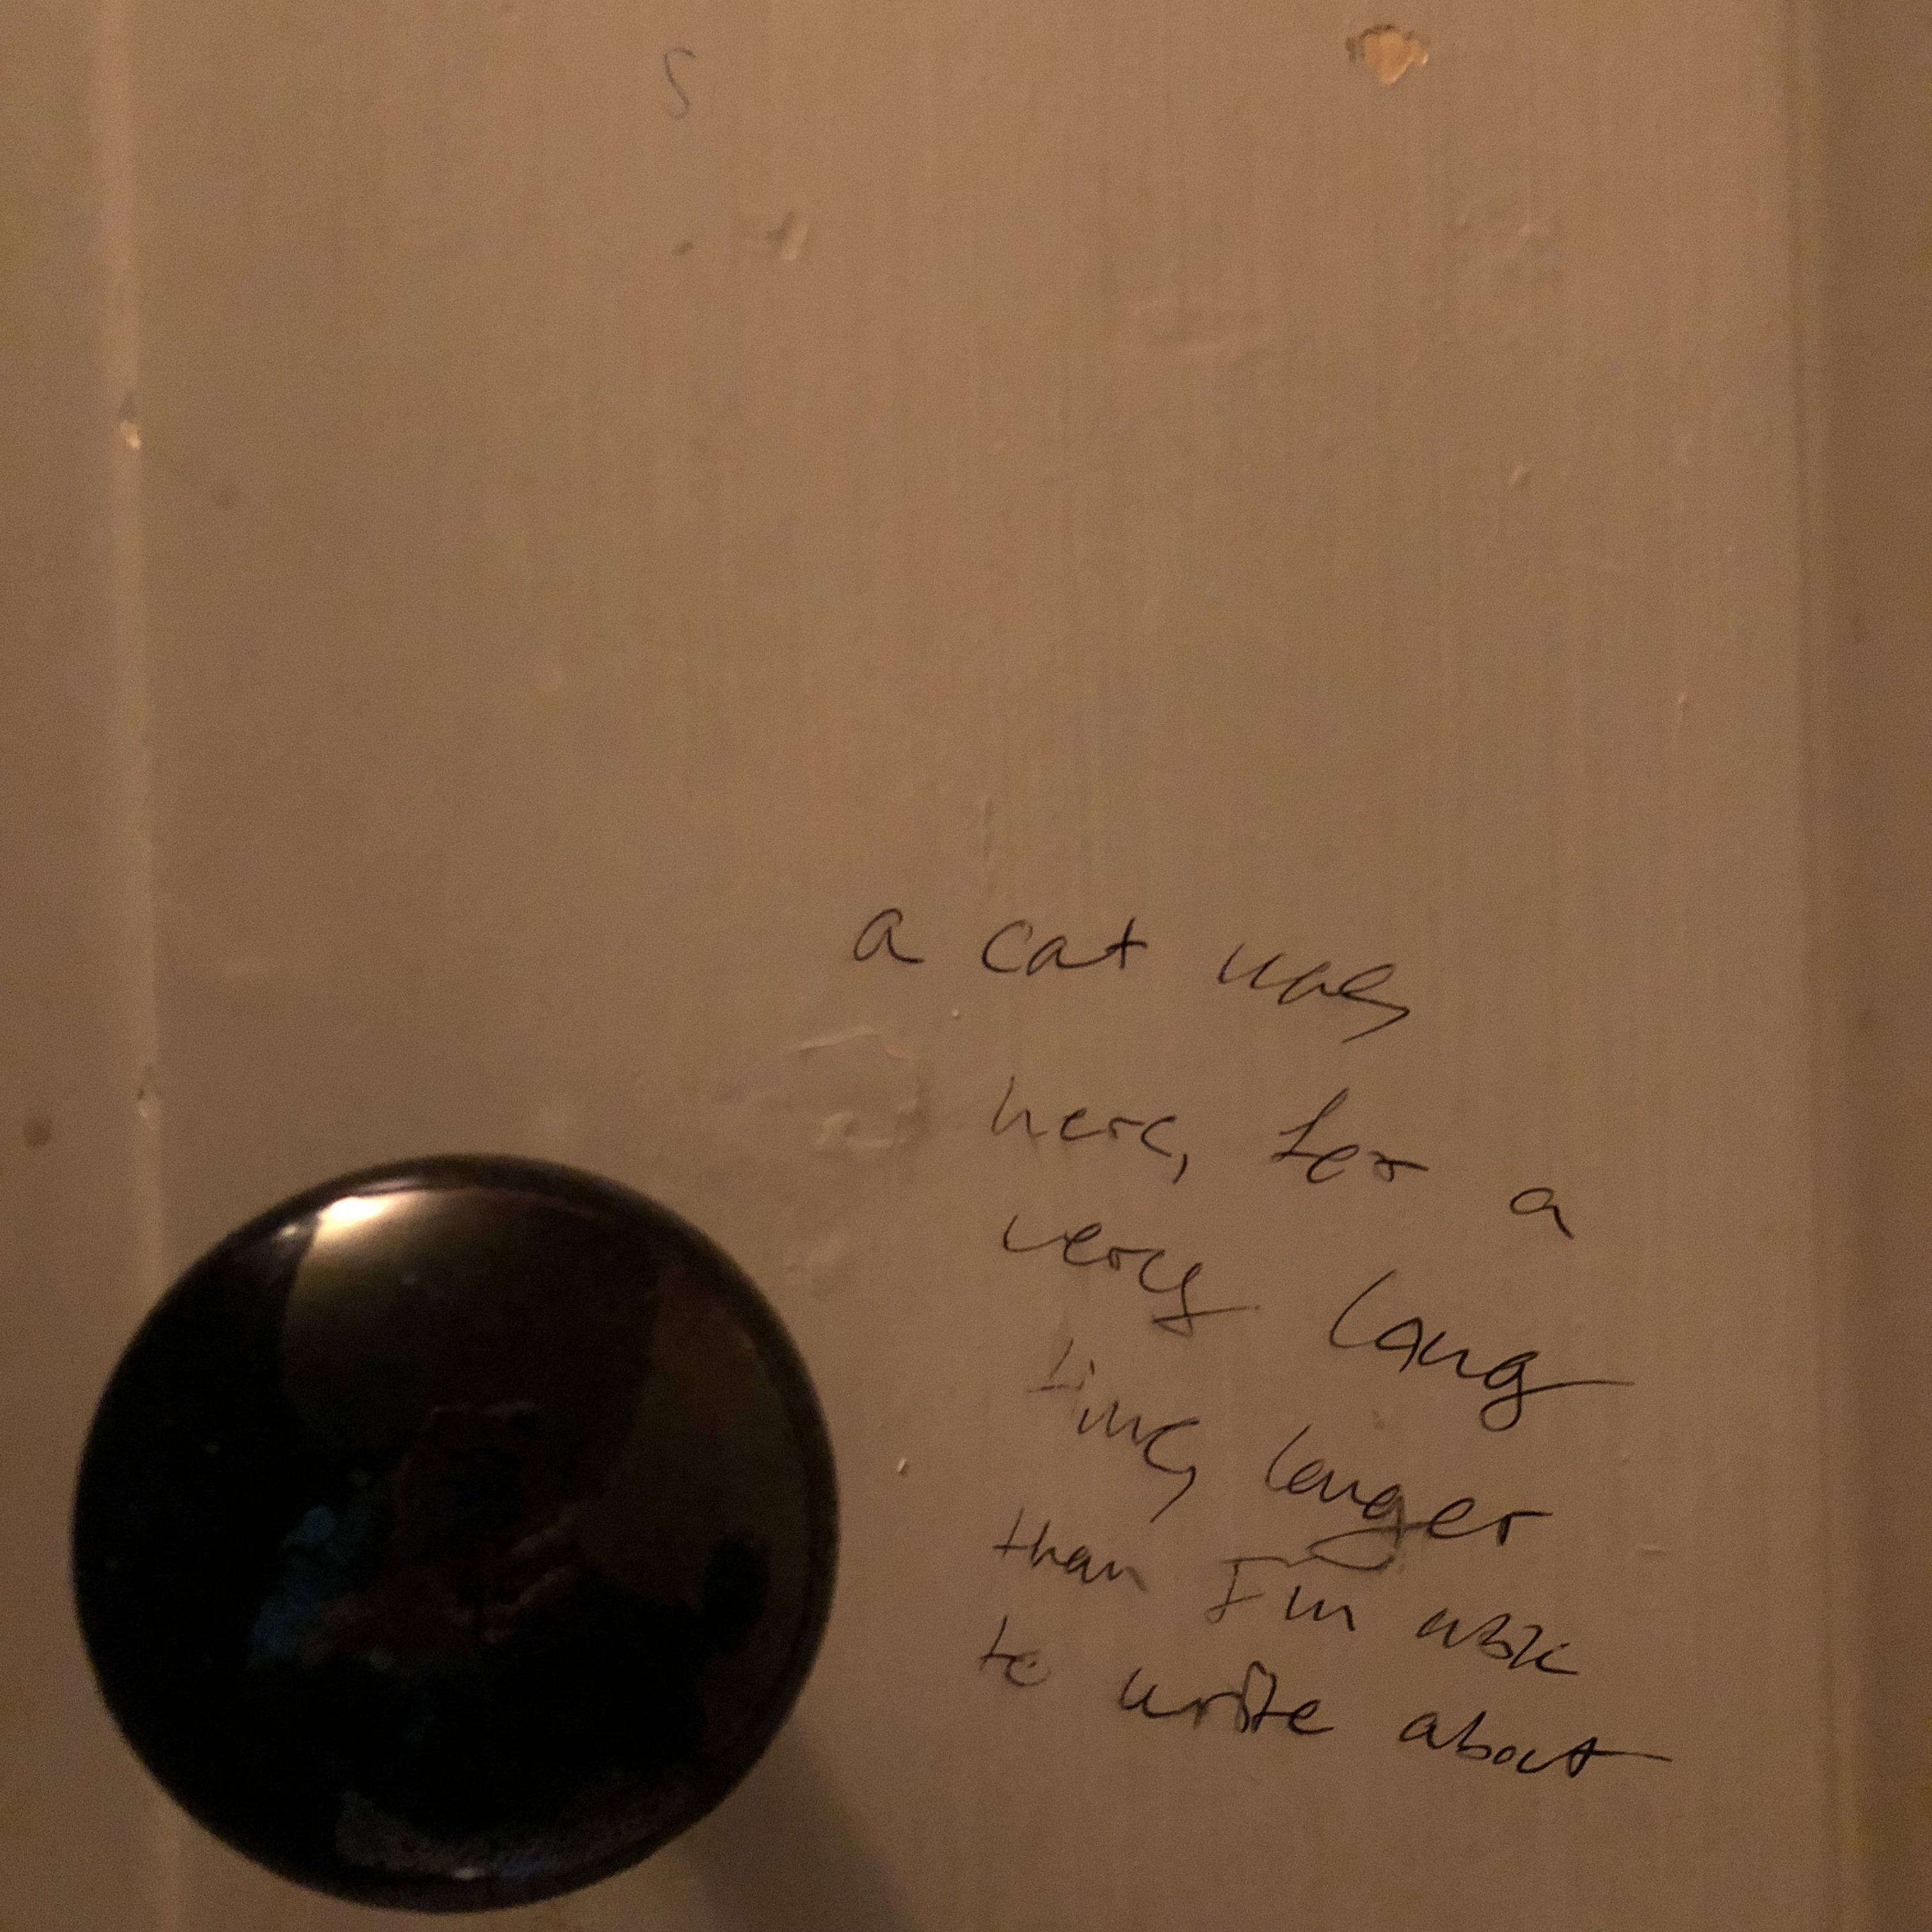 S
a cat was
here, for a
very long
time, longer
than I'm able
to write about